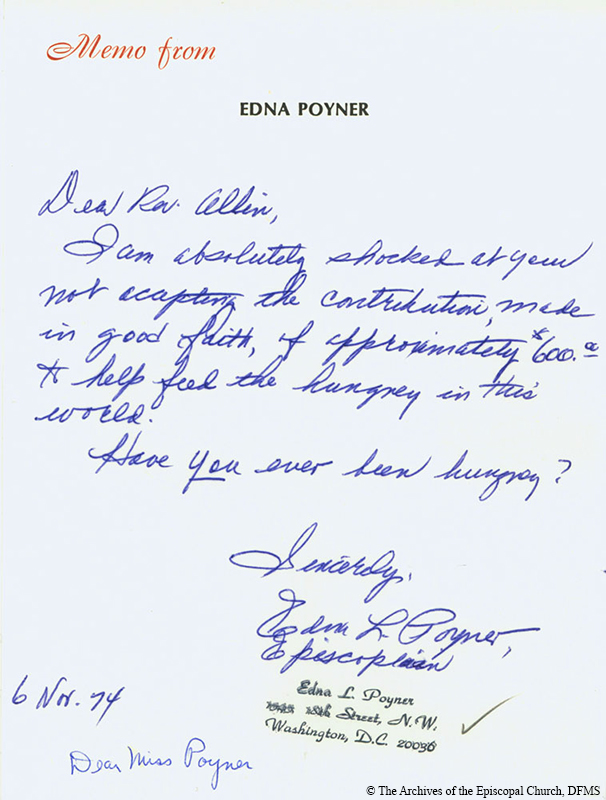 Memo from
EDNA POYNER
Dear Rev. Allin,
I am absolutely shocked at your
not acapting the contribution, made
in good faith, of approximately $600.00
to help feed the hungrey in this
world.
Have you ever been hungrey?
Sincerely,
Edna L. Poyner,
Episcoplian
Edna L. Poyner
18th Street, N.W.
Washington, D.C. 20036
6 Nov. 74
Dear Miss Poyner
© The Archives of the Episcopal Church, DFMS